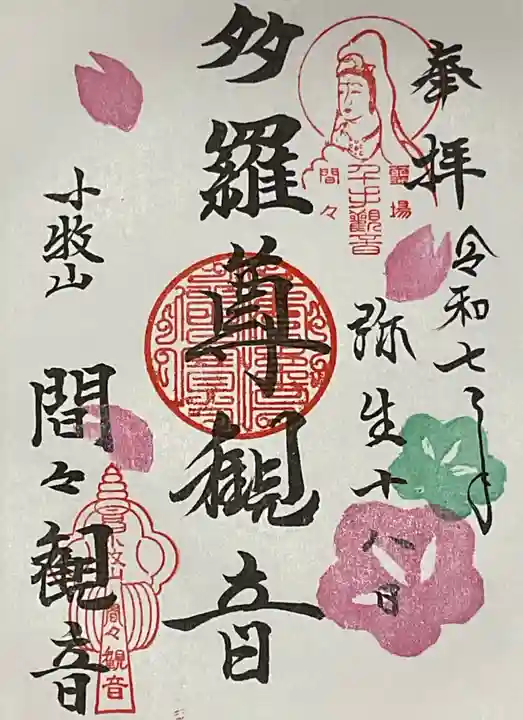 奉拝
令和七年
弥生十八日
霊場
間々
千手観音
多羅尊観音
小牧山
間々観音
小牧山
間々観音